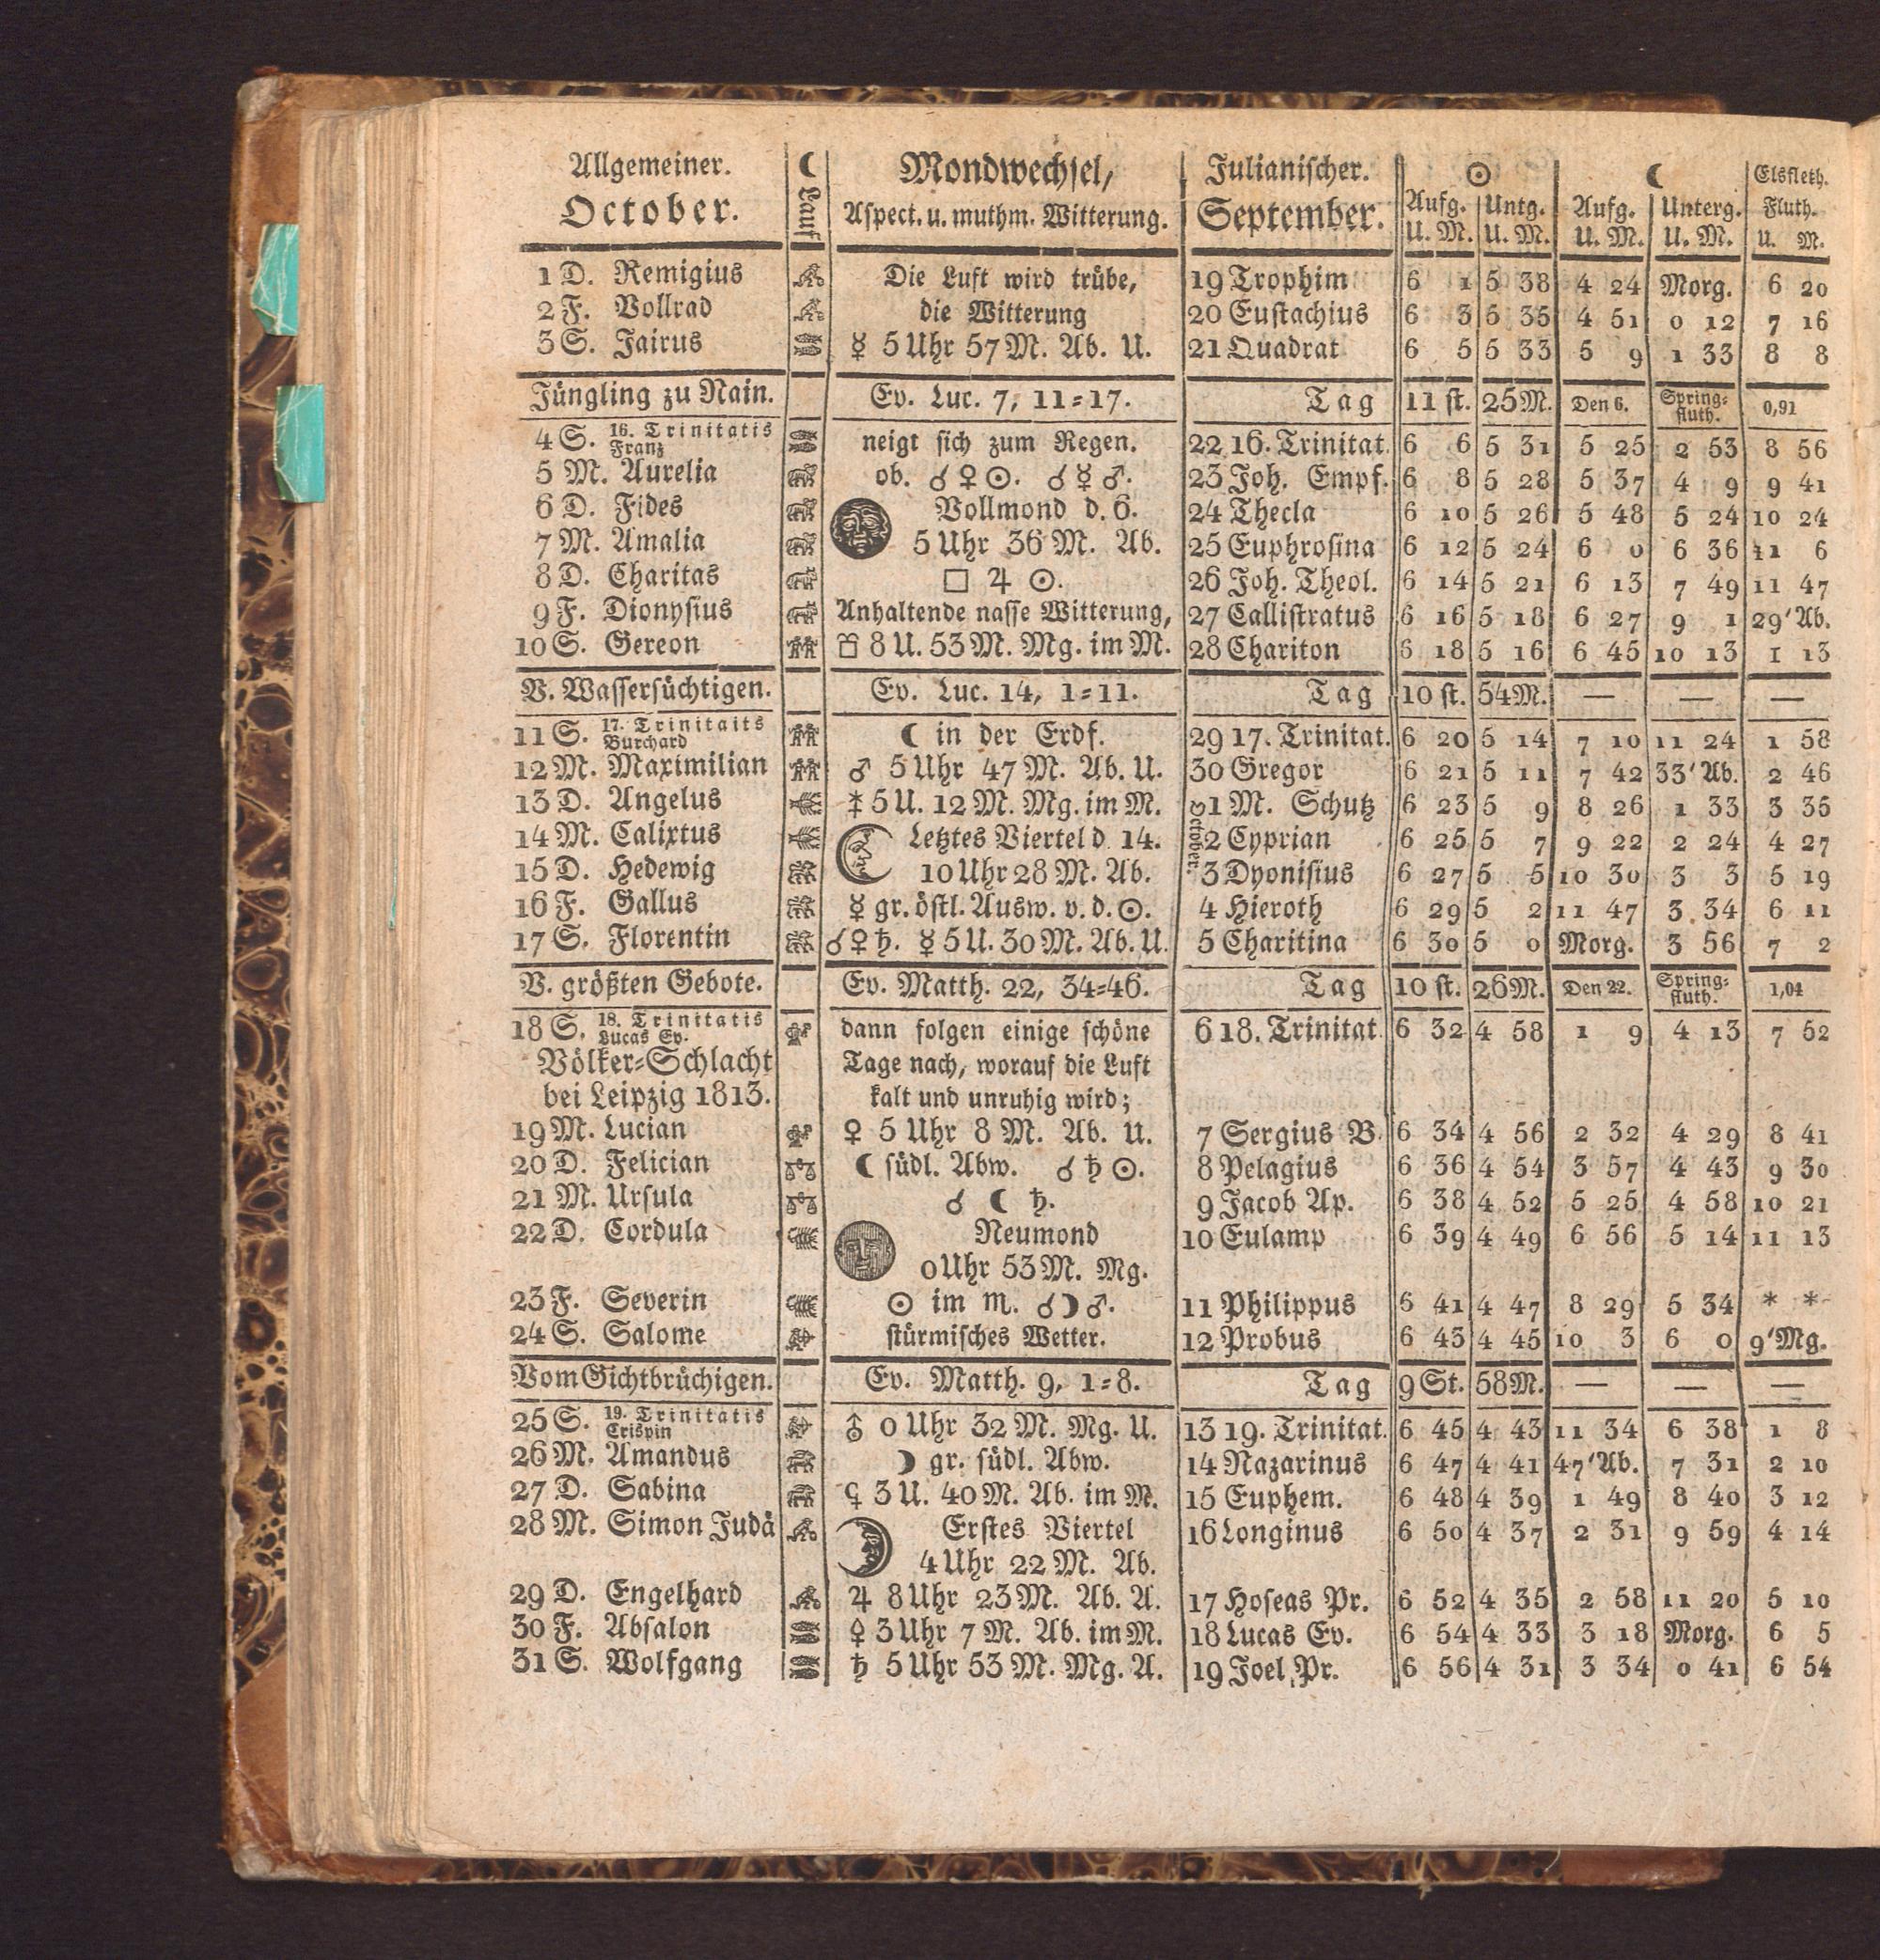 Allgemeiner. ☾ Mondwechsel, Julianischer. ☉ ☾ Elsfleth.
October. Lauf Aspect. u. muthm. Witterung. September. Aufg. Untg. Aufg. Unterg. Fluth.
U. M. U. M. U. M. U. M. U. M.
1 D. Remigius Die Luft wird trübe, 19 Trophim 6 1 5 38 4 24 Morg. 6 20
2 F. Vollrad die Witterung 20 Eustachius 6 3 5 35 4 51 0 12 7 16
3 S. Jairus ☿ 5 Uhr 57 M. Ab. U. 21 Quadrat 6 5 5 33 5 9 1 33 8 8
Jüngling zu Nain. Ev. Luc. 7, 11=17. Tag 11 st. 25 M. Den 6. Spring=fluth. 0,91
4 S. 16. Trinitatis Franz neigt sich zum Regen. 22 16. Trinitat. 6 6 5 31 5 25 2 53 8 56
5 M. Aurelia ob. ☌ ♀ ☉. ☌ ☿ ♂. 23 Joh. Empf. 6 8 5 28 5 37 4 9 9 41
6 D. Fides Vollmond d. 6. 24 Thecla 6 10 5 26 5 48 5 24 10 24
7 M. Amalia 5 Uhr 36 M. Ab. 25 Euphrosina 6 12 5 24 6 0 6 36 11 6
8 D. Charitas □ ♃ ☉. 26 Joh. Theol. 6 14 5 21 6 13 7 49 11 47
9 F. Dionysius Anhaltende nasse Witterung, 27 Callistratus 6 16 5 18 6 27 9 1 29' Ab.
10 S. Gereon 8 U. 53 M. Mg. im M. 28 Chariton 6 18 5 16 6 45 10 13 1 13
V. Wassersüchtigen. Ev. Luc. 14, 1=11. Tag 10 st. 54 M. — — —
11 S. 17. Trinitaits Burchard ☾ in der Erdf. 29 17. Trinitat. 6 20 5 14 7 10 11 24 1 58
12 M. Maximilian ♂ 5 Uhr 47 M. Ab. U. 30 Gregor 6 21 5 11 7 42 33' Ab. 2 46
13 D. Angelus 5 U. 12 M. Mg. im M. October. 1 M. Schutz 6 23 5 9 8 26 1 33 3 35
14 M. Calixtus Letztes Viertel d 14. 2 Cyprian 6 25 5 7 9 22 2 24 4 27
15 D. Hedewig 10 Uhr 28 M. Ab. 3 Dyonisius 6 27 5 5 10 30 3 3 5 19
16 F. Gallus ☿ gr. östl. Ausw. v. d. ☉. 4 Hieroth 6 29 5 2 11 47 3 34 6 11
17 S. Florentin ☌ ♀ ♄. ☿ 5 U. 30 M. Ab. U. 5 Charitina 6 30 5 0 Morg. 3 56 7 2
V. größten Gebote. Ev. Matth. 22, 34=46. Tag 10 st. 26 M. Den 22. Spring=fluth. 1,04
18 S. 18. Trinitatis Lucas Ev. dann folgen einige schöne 6 18. Trinitat. 6 32 4 58 1 9 4 13 7 52
Völker=Schlacht Tage nach, worauf die Luft
bei Leipzig 1813. kalt und unruhig wird;
19 M. Lucian ♀ 5 Uhr 8 M. Ab. U. 7 Sergius B. 6 34 4 56 2 32 4 29 8 41
20 D. Felician ☾ südl. Abw. ☌ ♄ ☉. 8 Pelagius 6 36 4 54 3 57 4 43 9 30
21 M. Ursula ☌ ☾ ♄. 9 Jacob Ap. 6 38 4 52 5 25 4 58 10 21
22 D. Cordula Neumond 10 Eulamp 6 39 4 49 6 56 5 14 11 13
0 Uhr 53 M. Mg.
23 F. Severin ☉ im ♏. ☌ ☽ ♂. 11 Philippus 6 41 4 47 8 29 5 34 * *
24 S. Salome stürmisches Wetter. 12 Probus 6 43 4 45 10 3 6 0 9' Mg.
Vom Gichtbrüchigen. Ev. Matth. 9, 1=8. Tag 9 St. 58 M. — — —
25 S. 19. Trinitatis Crispin ⛢ 0 Uhr 32 M. Mg. U. 13 19. Trinitat. 6 45 4 43 11 34 6 38 1 8
26 M. Amandus ☽ gr. südl. Abw. 14 Nazarinus 6 47 4 41 47' Ab. 7 31 2 10
27 D. Sabina ⚳ 3 U. 40 M. Ab. im M. 15 Euphem. 6 48 4 39 1 49 8 40 3 12
28 M. Simon Judä Erstes Viertel 16 Longinus 6 50 4 37 2 31 9 59 4 14
4 Uhr 22 M. Ab.
29 D. Engelhard ♃ 8 Uhr 23 M. Ab. A. 17 Hoseas Pr. 6 52 4 35 2 58 11 20 5 10
30 F. Absalon ⚴ 3 Uhr 7 M. Ab. im M. 18 Lucas Ev. 6 54 4 33 3 18 Morg. 6 5
31 S. Wolfgang ♄ 5 Uhr 53 M. Mg. A. 19 Joel Pr. 6 56 4 31 3 34 0 41 6 54